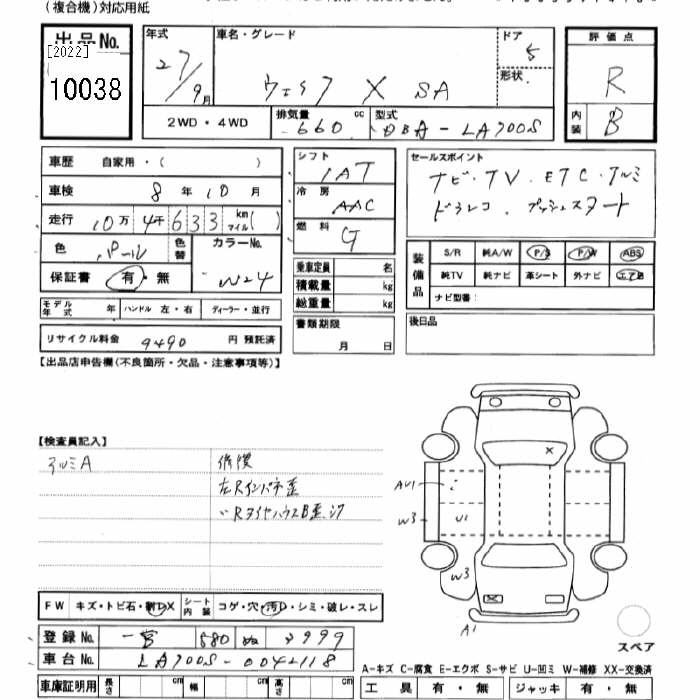 (複合機)対応用紙
出品No.
[2022]
10038
年式
27/9月
車名・グレード
ウェイク X SA
ドア
5
形状
評価点
R
内装
B
2WD・4WD
排気量
660 cc
型式
DBA-LA700S
車歴 自家用・( )
車検 8年10月
走行 10万4千633 km マイル( )
色 パール
色替
カラーNo.
W24
保証書 有・無
モデル年式 年 ハンドル 左・右 ディーラー・並行
リサイクル料金 9490 円 預託済
シフト
IAT
冷房
AAC
燃料
G
乗車定員 名
積載量 kg
総重量 kg
書類期限
月 日
セールスポイント
ナビ・TV・ETC・アルミ
ドラレコ・プッシュスタート
装備品
S/R 純A/W P/S P/W ABS
純TV 純ナビ 革シート 外ナビ エアB
ナビ型番:
後日品
【出品店申告欄(不良箇所・欠品・注意事項等)】
【検査員記入】
アルミA
修復
左Rインパネ歪
〃RタイヤハウスB歪.ジワ
AU1
W3
U1
W3
A1
X
X
スペア
FW キズ・トビ石・割D X シート内装 コゲ・穴・汚D・シミ・破レ・スレ
登録No. 一宮 580 ぬ 3999
車台No. LA700S-0042118
車庫証明用 長さ cm 幅 cm 高さ cm
A-キズ C-腐食 E-エクボ S-サビ U-凹ミ W-補修 XX-交換済
工具 有・無 ジャッキ 有・無